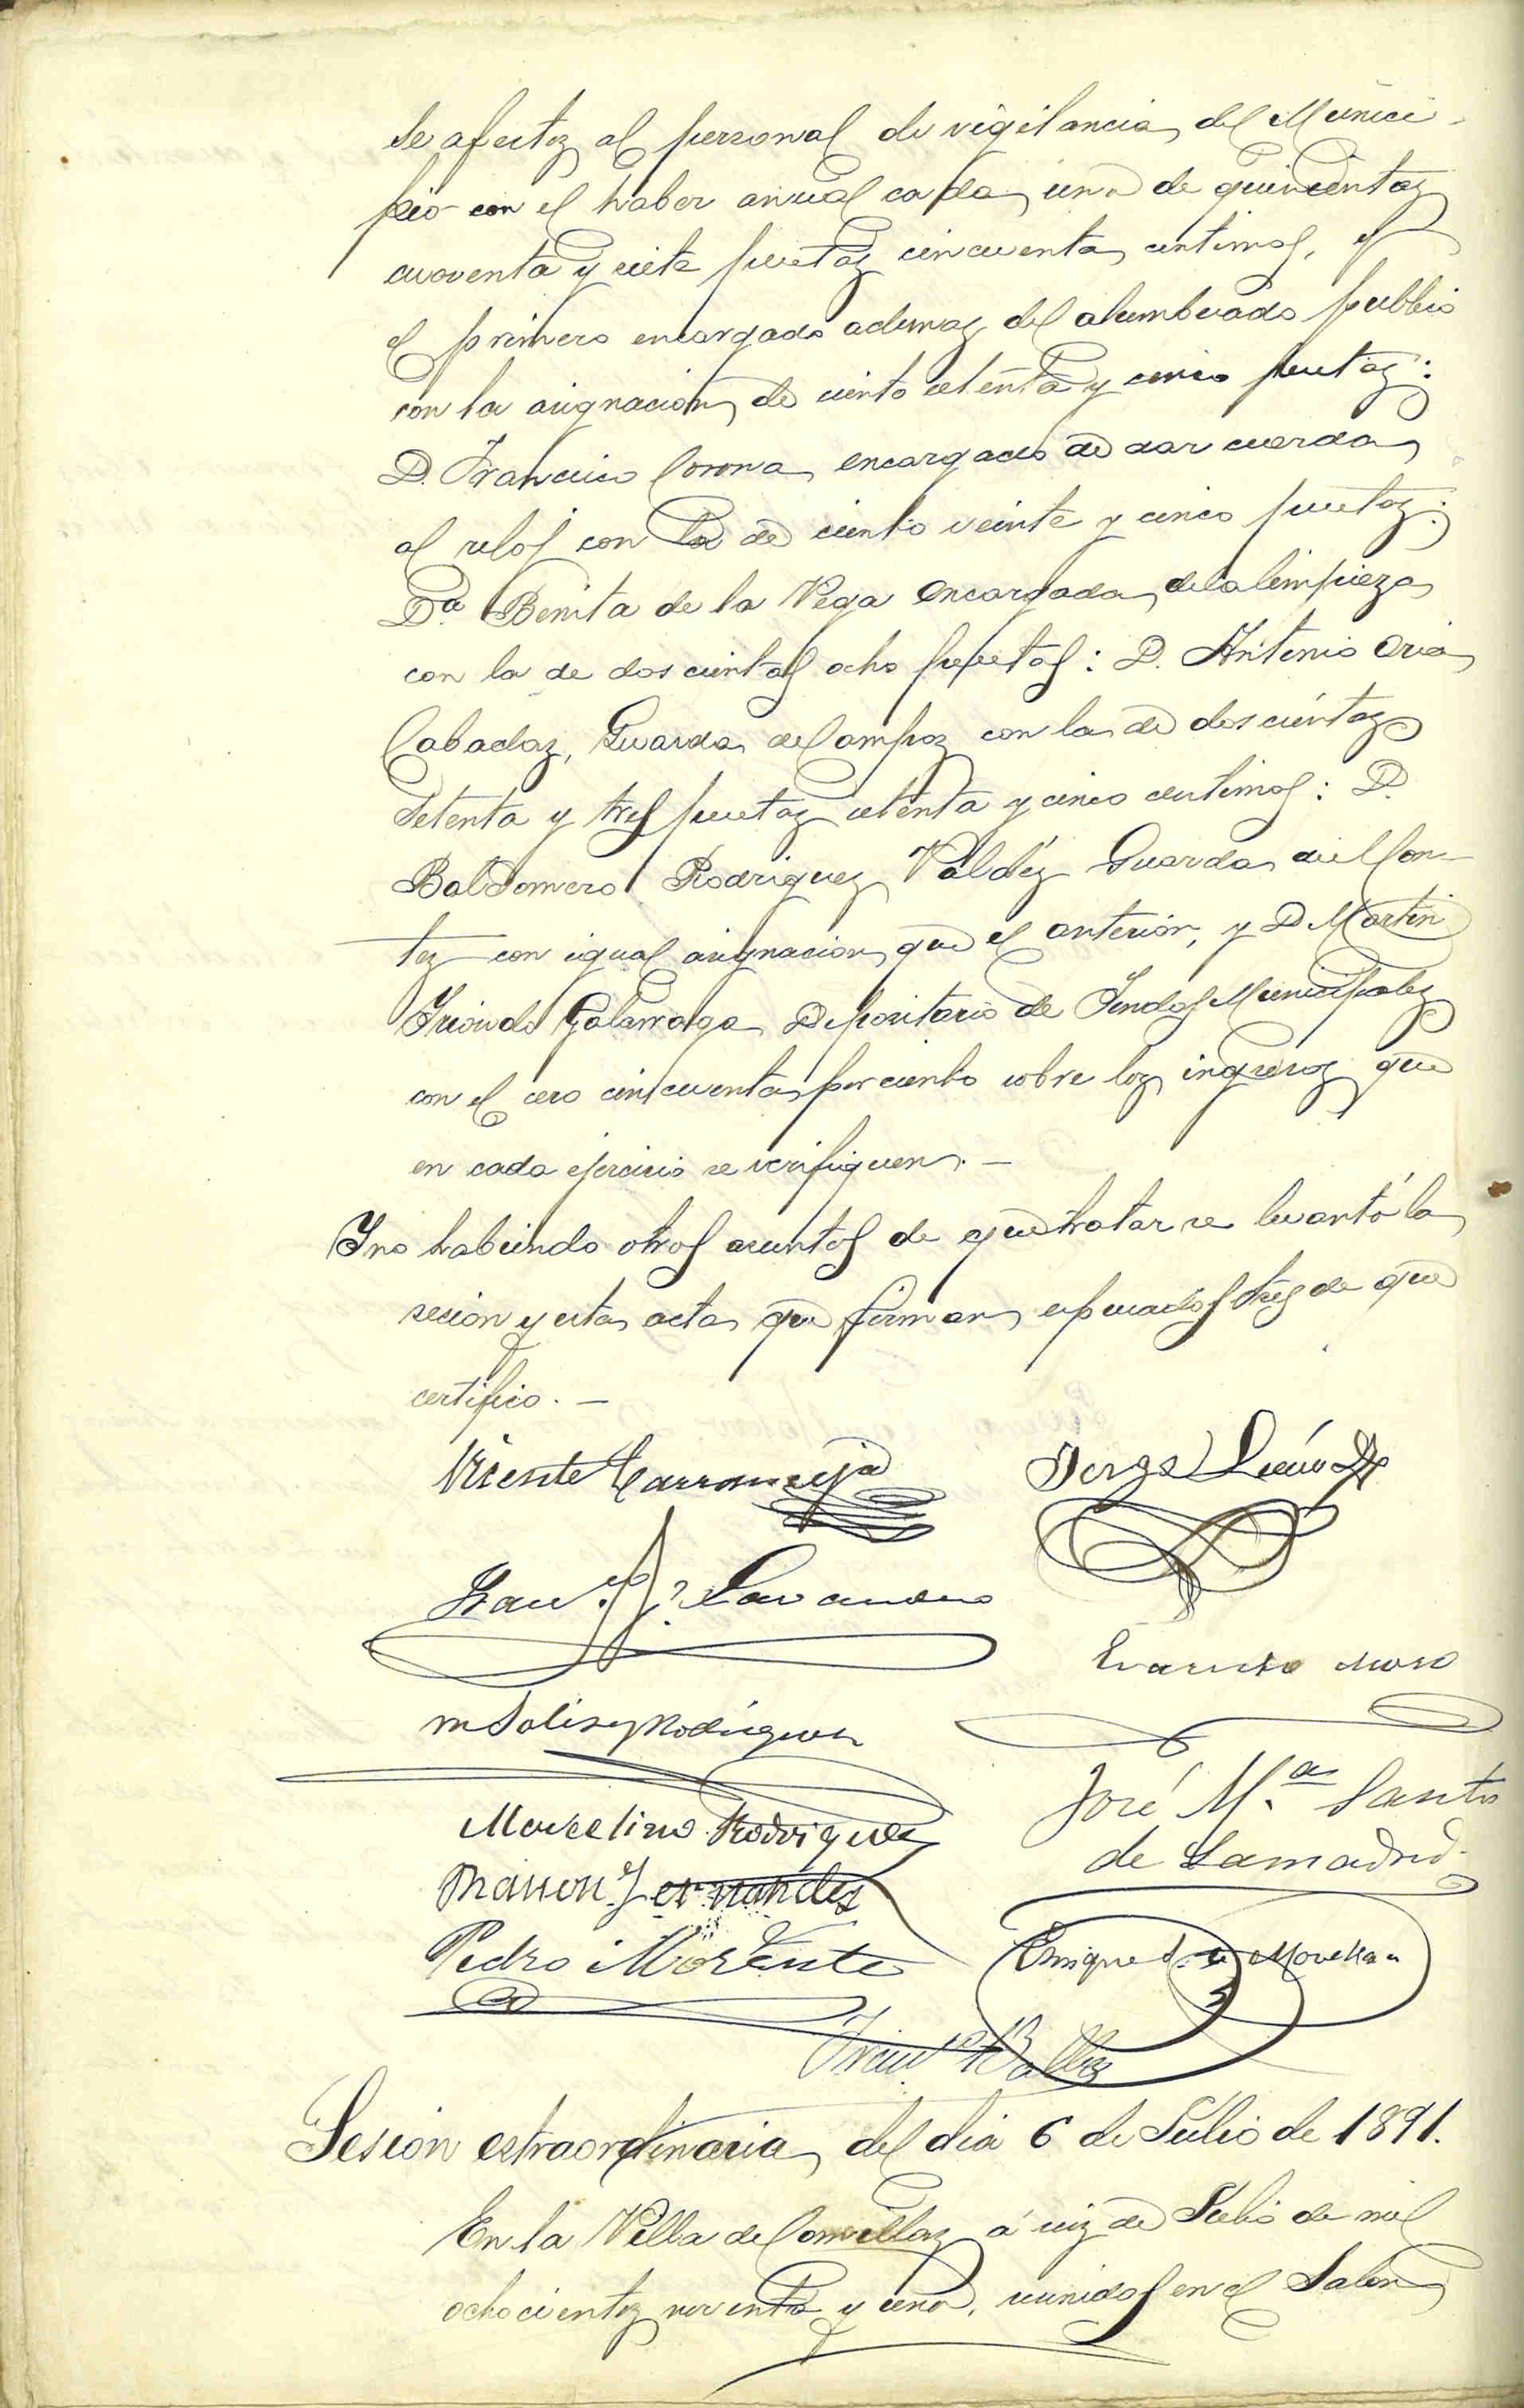 se afectos al personal de vigilancia del Munici-
pio con el haber anual cada uno de quinientas
cuarenta y siete pesetas cincuenta centimos, y
el primero encargado ademas del alumbrado publico
con la asignacion de ciento setenta y cinco pesetas:
D. Francisco Corona encargado de dar cuerda
al reloj con la de ciento veinte y cinco pesetas:
Dª Benita de la Vega encargada de la limpieza
con la de doscientas ocho pesetas: D. Antonio Oria
Cabadas, Guarda de Campos con la de doscientas
setenta y tres pesetas setenta y cinco centimos: D.
Baldomero Rodriguez Valdés Guarda de Mon-
tes con igual asignacion que el anterior, y D. Martin
Iriondo Galarraga Depositario de Fondos Municipales
con el cero cincuenta por ciento sobre los ingresos que
en cada ejercicio se verifiquen.—
Y no habiendo otros asuntos de que tratar se levantó la
sesion y esta acta que firman expresados Sres de que
certifico.—
Vicente Carranceja
Jorge
Fran.co
Evaristo
M Solis y Rodriguez
José M.ª Santos
de Lamadrid
Marcelino Rodriguez
Ramon Fernandez
Pedro Morante
Enrique
Sesion estraordinaria del dia 6 de Julio de 1891.
En la Villa de Comillas á seis de Julio de mil
ochocientos noventa y uno, reunidos en el Salon